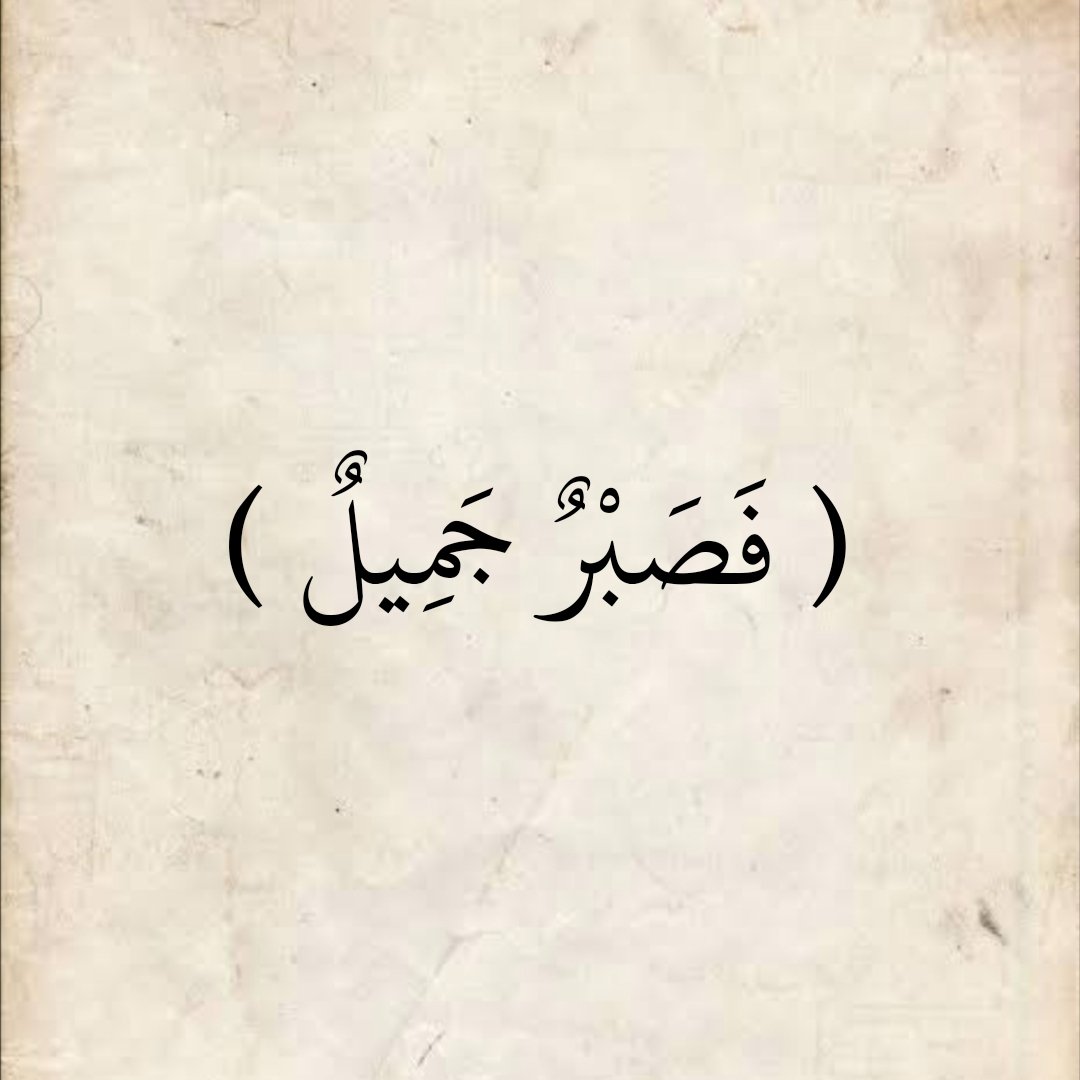 ( فَصَبْرٌ جَمِيلٌ )